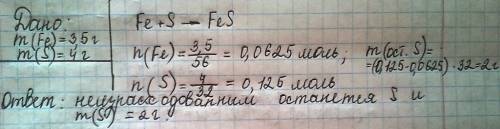 Дано:
m(Fe)=3,5г
m(S)=4г
Fe+S → FeS
n(Fe)= 3,5/56 = 0,0625 моль;
m(ост. S)=
=(0,125-0,0625)·32=2г
n(S)= 4/32 = 0,125 моль
Ответ: неизрасходованним останется S и
m(S)=2г.